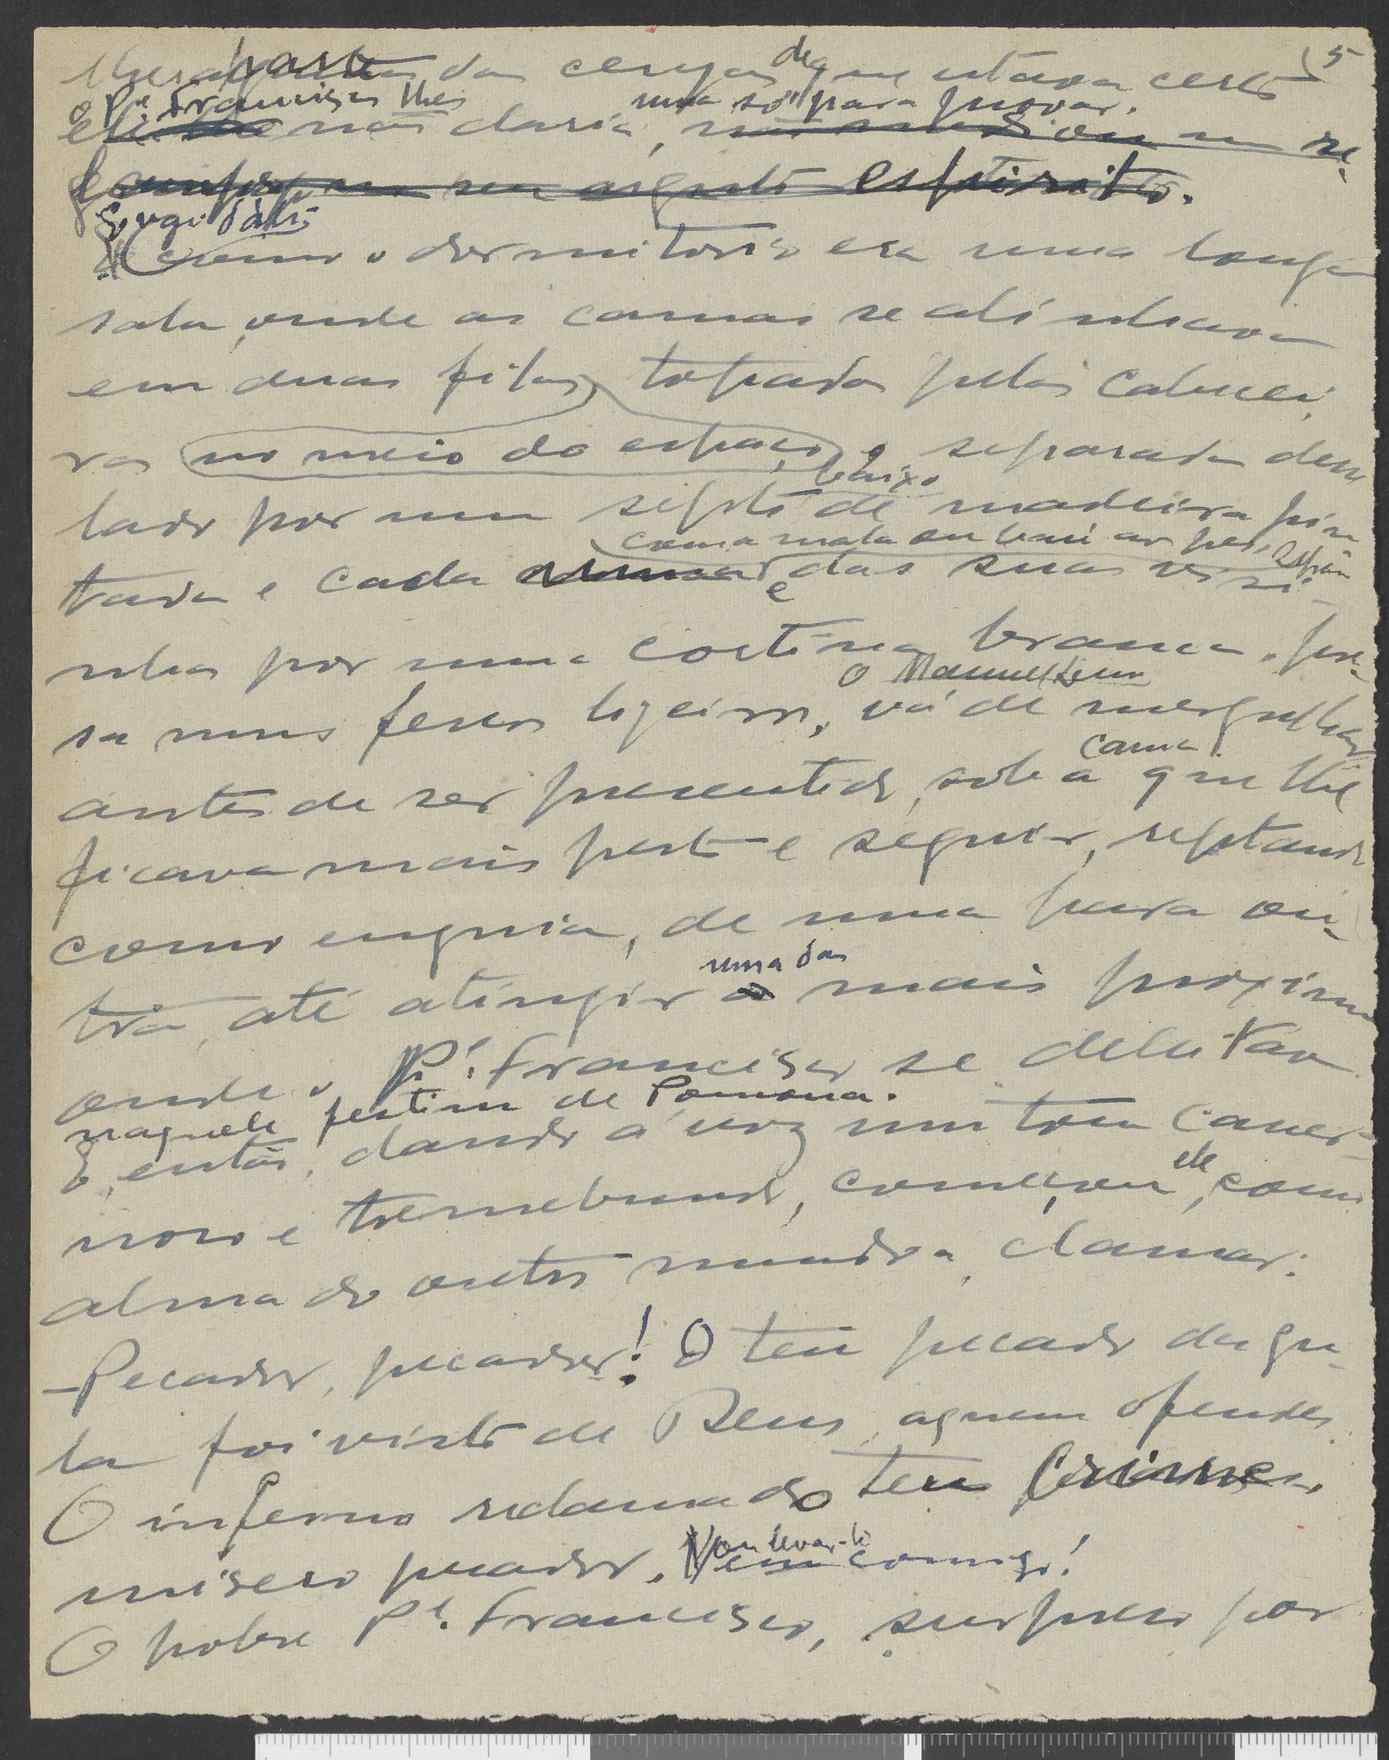 parte das cerejas de que estava certo 5
o Pe. Francisco lhes uma só para provar.
ele não daria,
seu espirito.
Como o dormitorio era uma longa
sala, onde as camas se alinhavam
em duas filas, topadas pelas cabecei-
ras no meio do espaço, e separadas dum
lado por um septo de madeira pin-
baixo
tada e cada uma das suas visi-
com a mala ou bau aos pés,
nhas por uma cortina branca, pre-
sa nuns ferros ligeiros, vá de mergulhar
o Manuel
antes de ser presentido, sob a cama que lhe
ficava mais perto e seguir, reptando
como enguia, de uma para ou-
tra, até atingir uma das mais proximas
onde o Pe. Francisco se deleitava
naquele festim de Pomona.
E, então, dando á voz um tom caver-
noso e tremebundo, começou ele, como
alma do outro mundo a clamar:
—Pecador, pecador! O teu pecado da gu-
la foi visto de Deus a quem ofendes.
O inferno reclama do teu crime,
misero pecador. Vou levar-te comigo!
Vem
O pobre Pe. Francisco, surpreso por